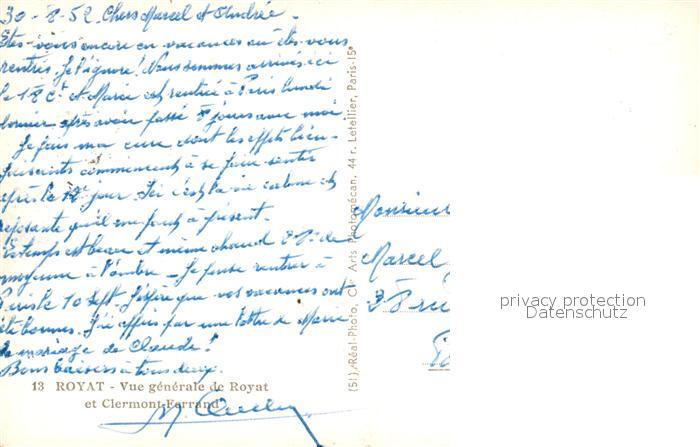 30-8-52. Chers Marcel et Andrée -
Etes-vous encore en vacances ou êtes-vous
rentrés, je l'ignore! Nous sommes arrivés ici
le 18 Ct et Marce est rentrée à Paris lundi
dernier après avoir passé 8 jours avec moi
Je fais ma cure dont les effets bien-
faisants commencent à se faire sentir
après le 12e jour. Ici c'est la vie calme et
reposante qu'il me faut à présent.
Le temps est beau et même chaud de
moyenne à l'ombre - Je pense rentrer à
Paris le 10 Sept. J'espère que vos vacances ont
été bonnes. J'ai appris par une lettre de Marce
le mariage de Claude!
Bons baisers à tous deux.
13 ROYAT - Vue générale de Royat
et Clermont-Ferrand
(51) Réal-Photo, C. Arts Photomécan. 44 r. Letellier, Paris-15e
Monsieur
Marcel
rue
privacy protection
Datenschutz